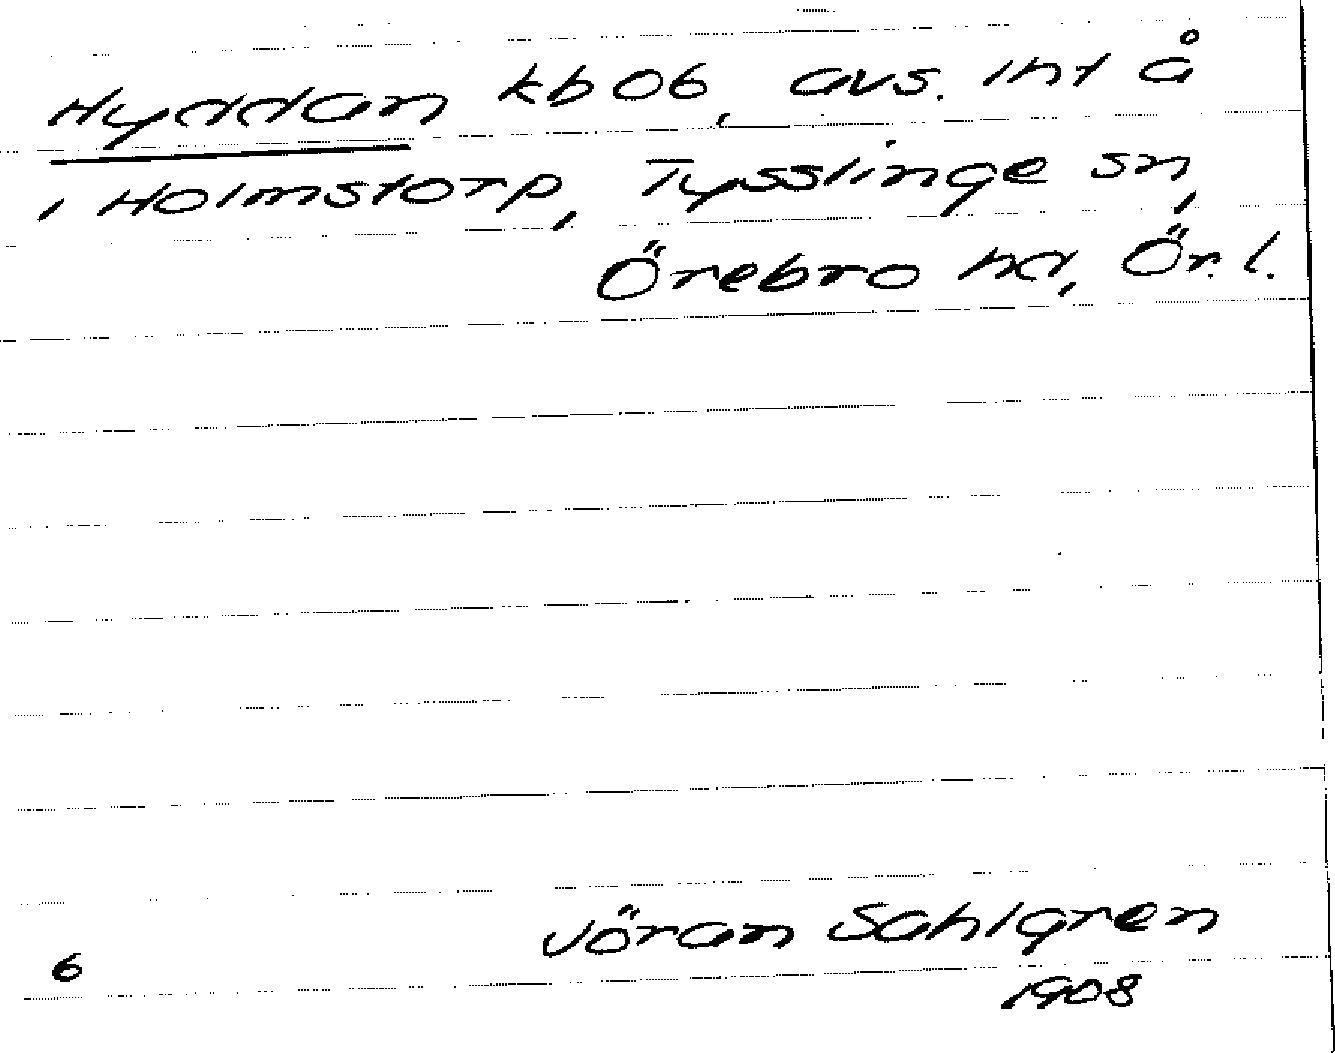 Hyddan kb06, avs. 1ht å
i Holmstorp, Tysslinge sn,
Örebro hd, Ör. l.
Jöran Sahlgren
6
1908